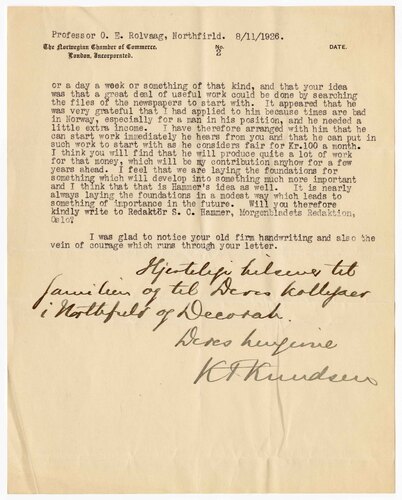 Professor O. E. Rolvaag, Northfirld. 8/11/1926.
The Norwegian Chamber of Commerce, No. DATE.
London, Incorporated. 2
or a day a week or something of that kind, and that your idea
was that a great deal of useful work could be done by searching
the files of the newspapers to start with. It appeared that he
was very grateful that I had applied to him because times are bad
in Norway, especially for a man in his position, and he needed a
little extra income. I have therefore arranged with him that he
can start work immediately he hears from you and that he can put in
such work to start with as he considers fair for Kr.100 a month.
I think you will find that he will produce quite a lot of work
for that money, which will be my contribution anyhow for a few
years ahead. I feel that we are laying the foundations for
something which will develop into something much more important
and I think that that is Hammer's idea as well. It is nearly
always laying the foundations in a modest way which leads to
something of importance in the future. Will you therefore
kindly write to Redaktör S. C. Hammer, Morgenbladets Redaktion,
Oslo?
I was glad to notice your old firm handwriting and also the
vein of courage which runs through your letter.
Hjertelige hilsener til
familien og til Deres kolleger
i Northfield og Decorah.
Deres hengivne
K T Knudsen